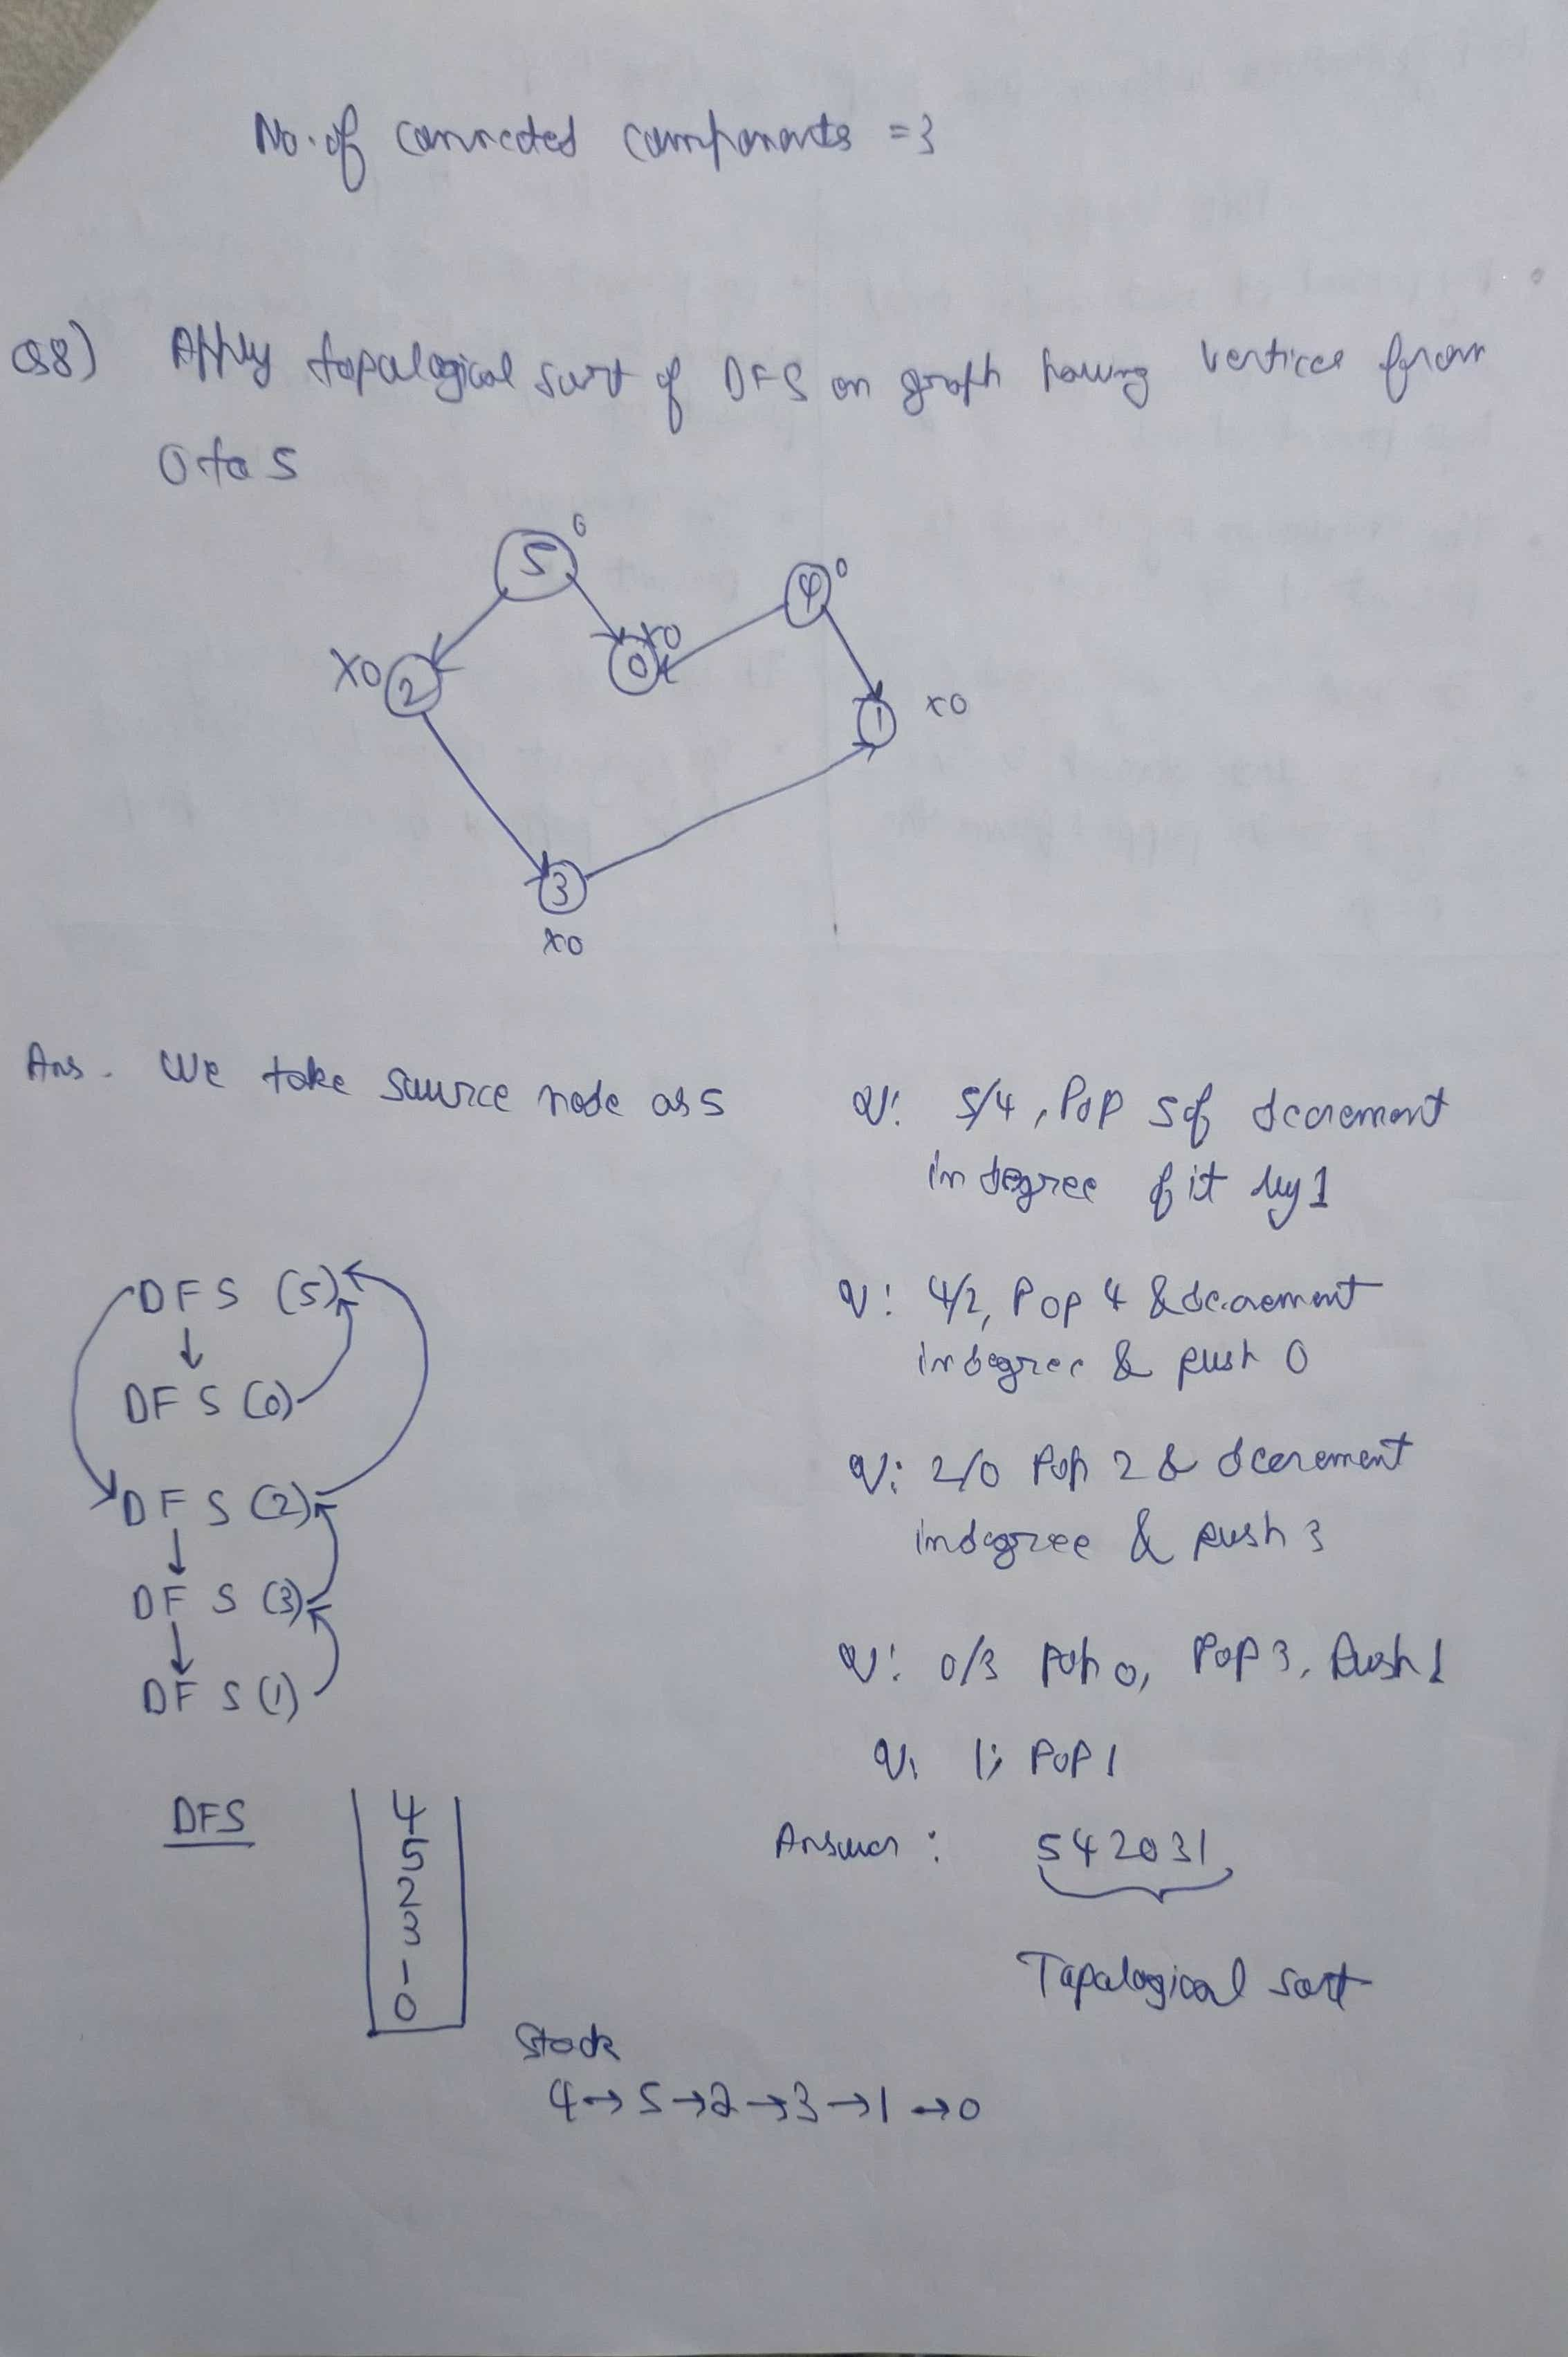 No. of connected components = 3
Q8) Apply topological sort of DFS on graph having vertices from
0 to 5
5 0
4 0
X0 2
0 X0
1 X0
3
X0
Ans. We take source node as 5
DFS (5)
↓
DFS (0)
DFS (2)
↓
DFS (3)
↓
DFS (1)
DFS
4
5
2
3
1
0
Stack
4→5→2→3→1→0
Q: 5/4, Pop 5 & decrement
indegree of it by 1
Q: 4/2, Pop 4 & decrement
indegree & push 0
Q: 2/0 Pop 2 & decrement
indegree & push 3
Q: 0/3 Pop 0, Pop 3, Push 1
Q: 1; Pop 1
Answer: 542031
Topological sort